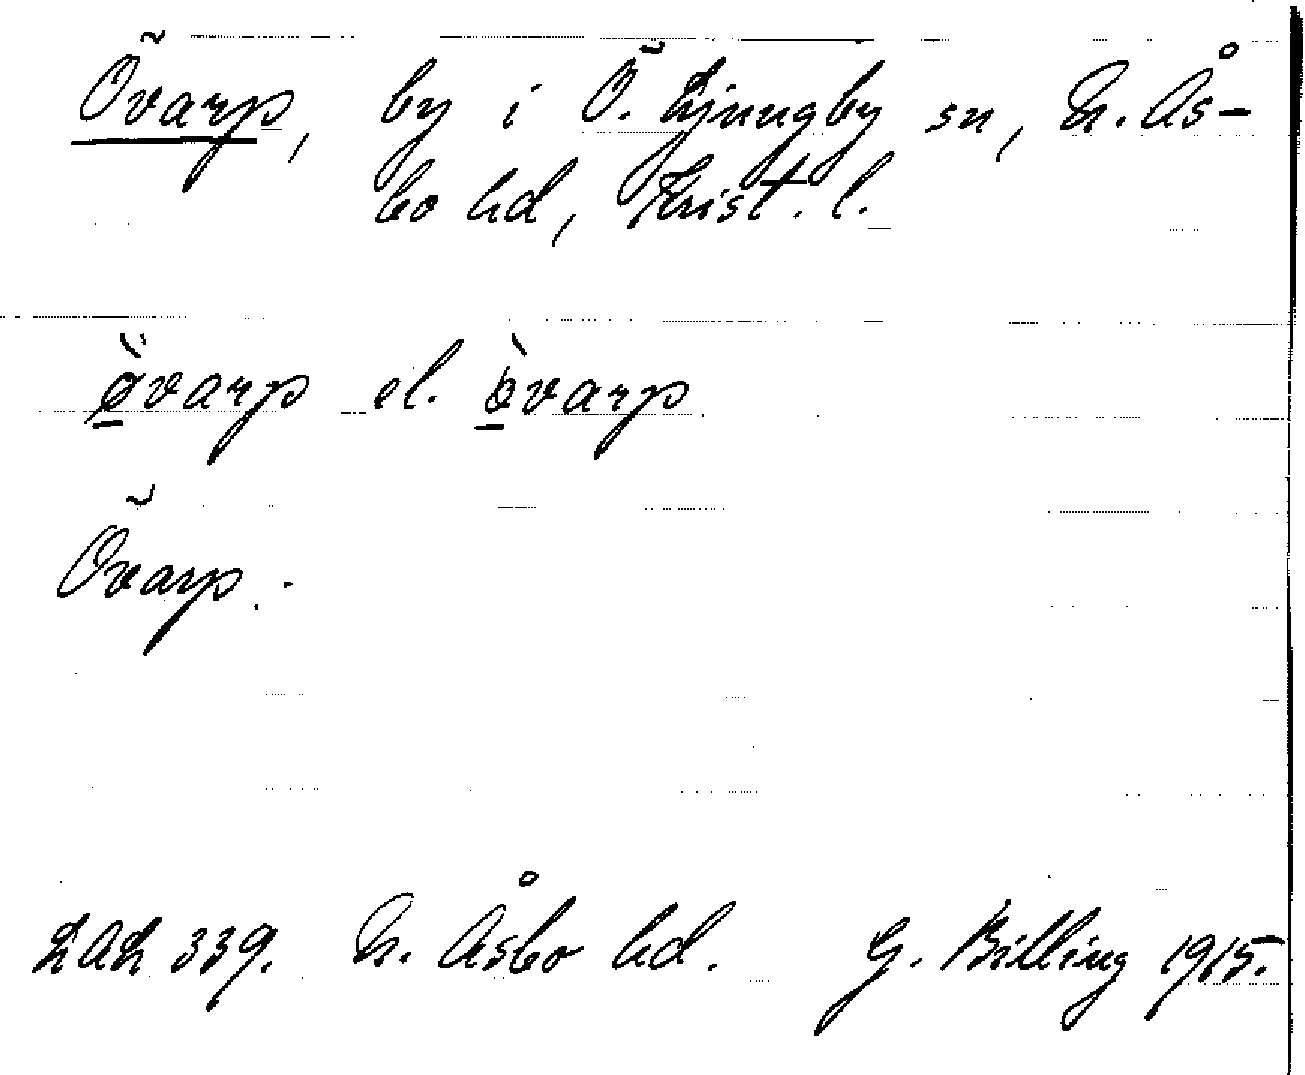 Övarp, by i Ö. Ljungby sn, N. Ås-
bo hd, Krist. l.
övarp el. òvarp
Övarp.
LAL 339. N. Åsbo hd. G. Billing 1915.